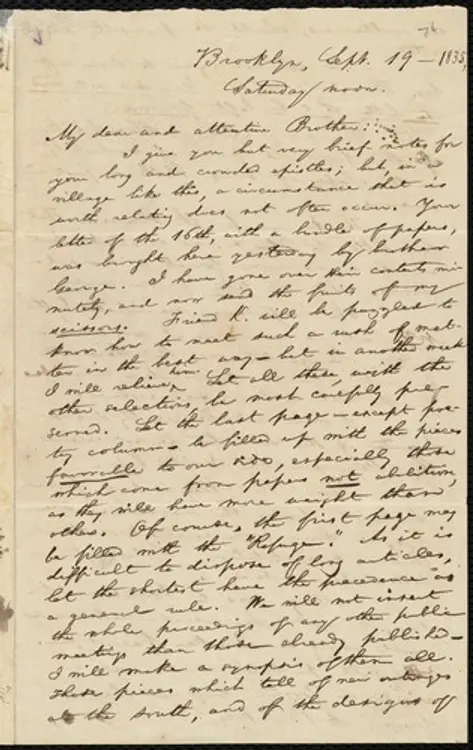 76
Brooklyn, Sept. 19 – 1835,
Saturday noon.
My dear and attentive Brother:
I give you but very brief notes for
your long and crowded epistles; but, in a
village like this, a circumstance that is
worth relating does not often occur. Your
letter of the 16th, with a bundle of papers,
was brought here yesterday by brother
George. I have gone over their contents mi-
nutely, and now send the fruits of my
scissors. Friend K. will be puzzled to
know how to meet such a rush of mat-
ter in the best way – but in another week
I will relieve him. Let all these, with the
other selections, be most carefully pre-
served. Let the last page – except poe-
try column – be filled up with the pieces
favorable to our side, especially those
which come from papers not abolition,
as they will have more weight than
others. Of course, the first page may
be filled with the "Refuge." As it is
difficult to dispose of long articles,
let the shortest have the precedence as
a general rule. We will not insert
the whole proceedings of any other public
meetings than those already published –
I will make a synopsis of them all.
Those pieces which tell of new outrages
at the south, and of the designs of